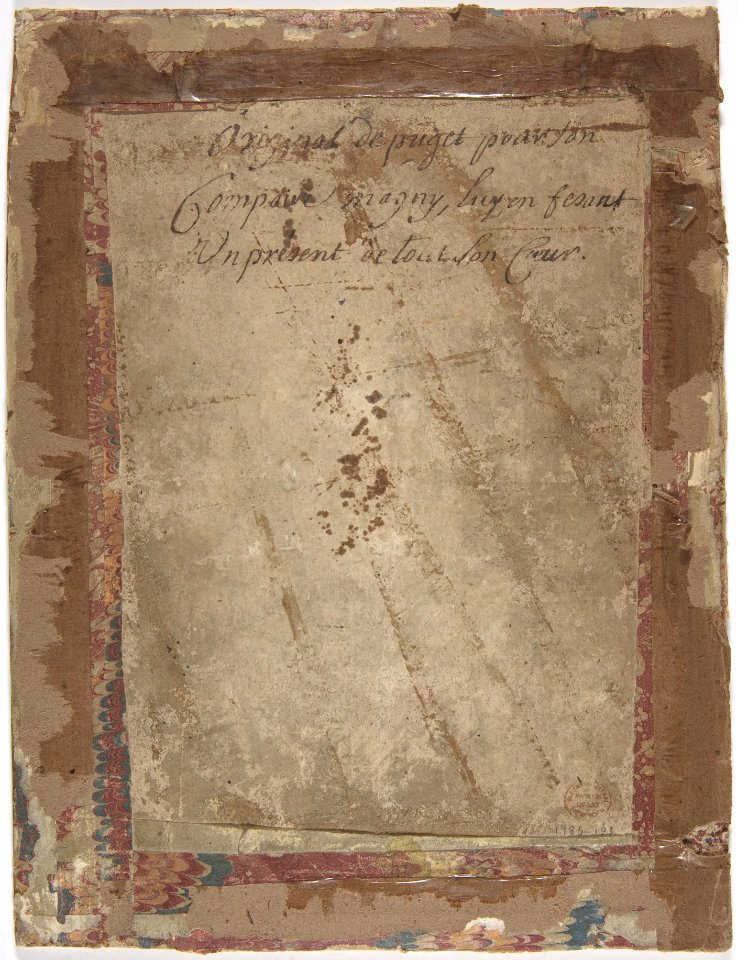 Original de puget pour son
Compaire magny, luy en fesant
Un présent de tout son Cœur.
1985.103